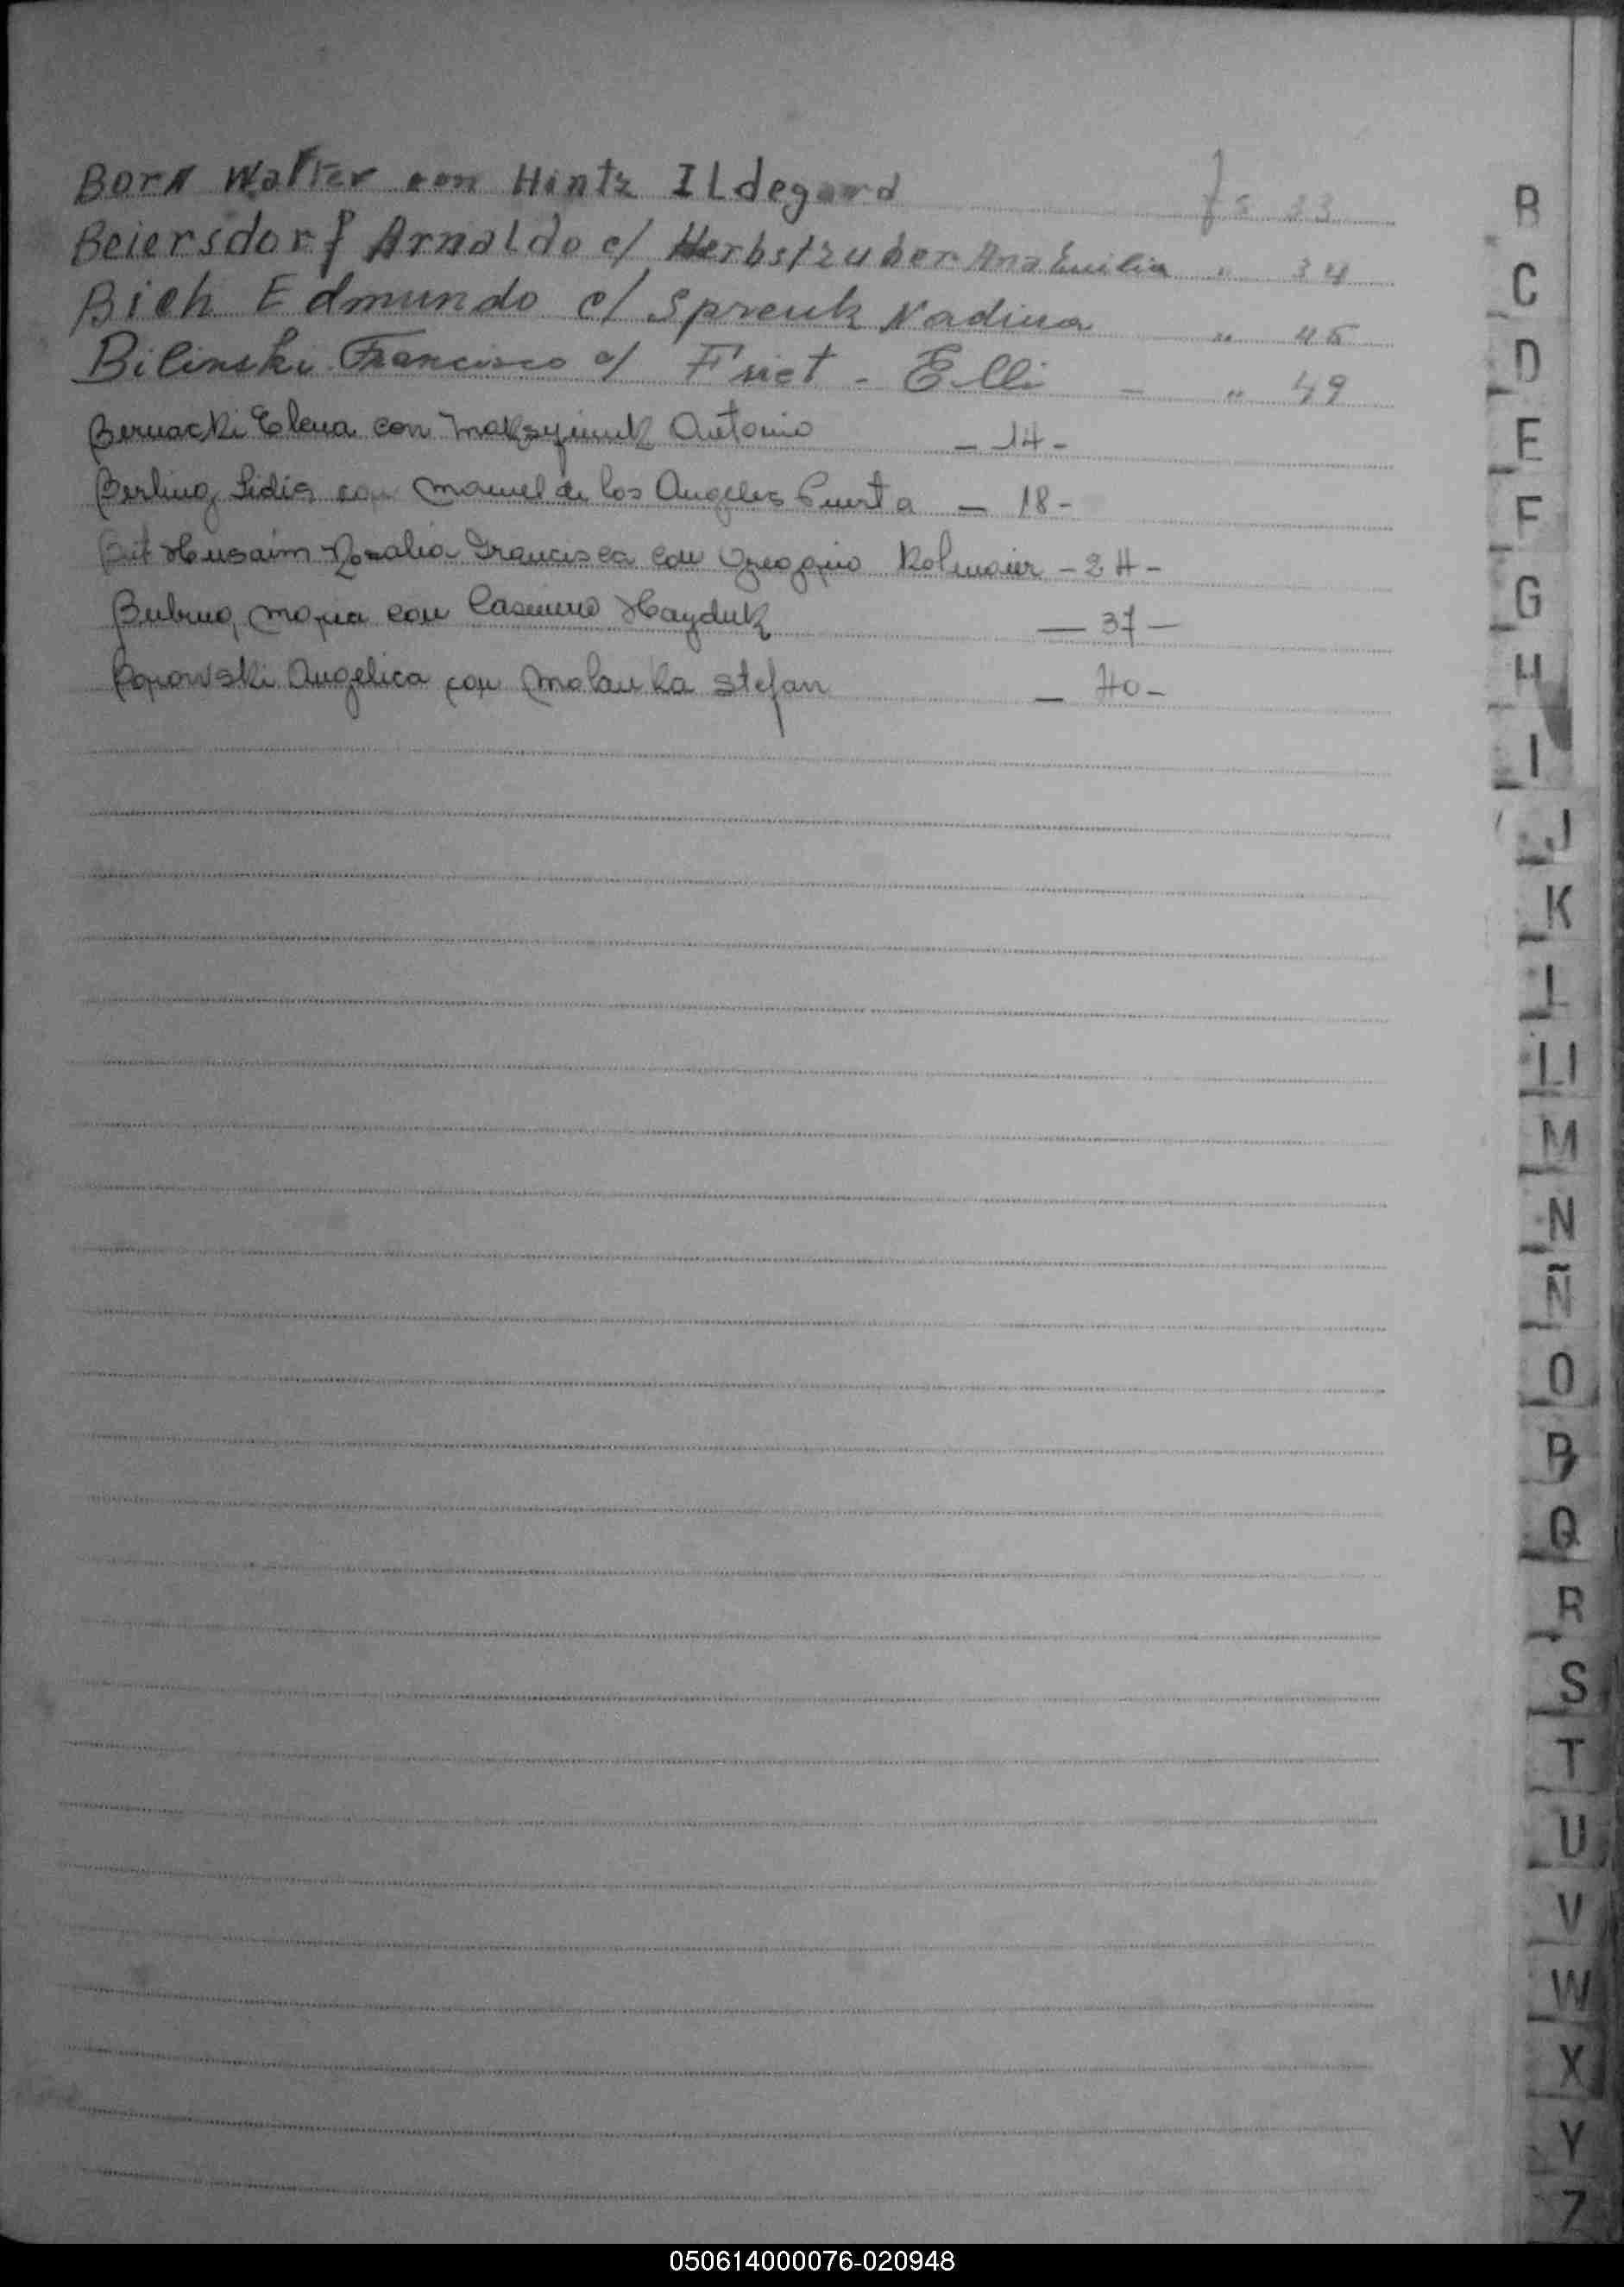 Born Walter con Hintz ILdegard fs 33
Beiersdorf Arnaldo c/ Herbstzuber Ana Emilia " 34
Bich Edmundo c/ Spreuk Nadina " 45
Bilinski Francisco c/ Friet - Elli - " 49
Bernacki Elena con Maksymiuk Antonio - 14 -
Berling Lidia con Manuel de los Angeles Puerta - 18 -
Bit Husaim Rosalia Francisca con - 24 -
Maria con Casimiro Hayduk - 37 -
Angelica con Stefan - 40 -
B
C
D
E
F
G
H
I
J
K
L
Ll
M
N
Ñ
O
P
Q
R
S
T
U
V
W
X
Y
Z
050614000076-020948